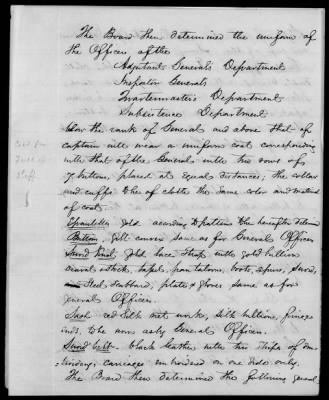 The Board then determined the uniform of
the Officers of the
Adjutant Generals Department
Inspector Generals
Quartermasters Department
Subsistence Department
below the rank of General and above that of
captain will wear a uniform coat corresponding
with that of the Generals with two rows of
7 buttons, placed at equal distances; the collar
and cuffs to be of cloth the same color and material
of coat.
Epaulettes gold according to pattern to be hereafter
Button, gilt convex same as for General Officers
Sword Knot gold lace strap with gold bullion
cravat or stock, tassel, pantaloons, boots, spurs, Sword,
Steel Scabbard, plate & gloves same as for
General Officers.
Sash red silk net work, silk bullion, fringe
ends, to be worn as by General Officers.
Sword belt black leather with two strips of em-
broidery; carriage embroidered on one side only.
The Board then determined the following general